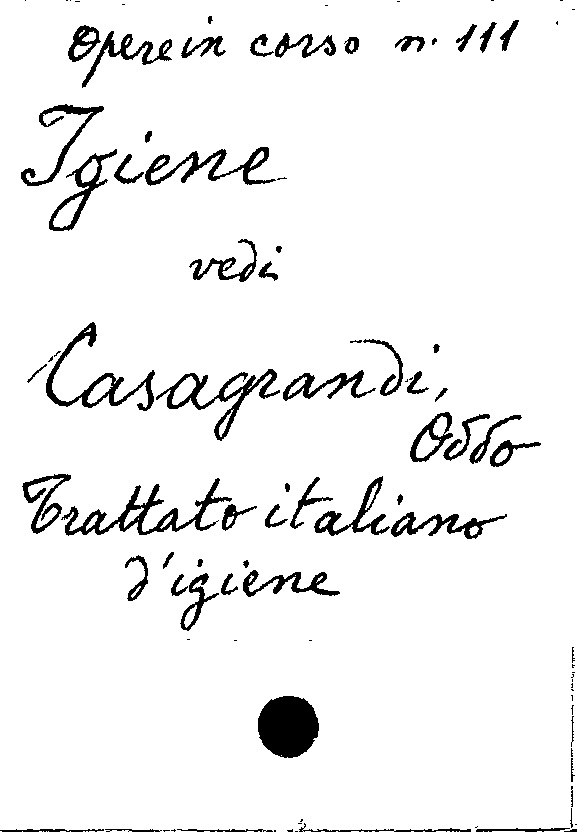 Opere in corso n. 111
Igiene
vedi
Casagrandi,
Oddo
Trattato italiano
d'igiene